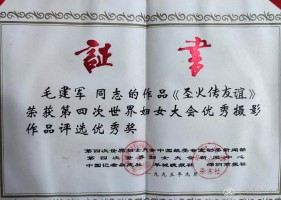 証書
毛建军 同志的作品《圣火传友谊》
荣获第四次世界妇女大会优秀摄影
作品评选优秀奖
第四次世界妇女大会中国组委会
第四次世界妇女大会新闻中心
一九九五年九月